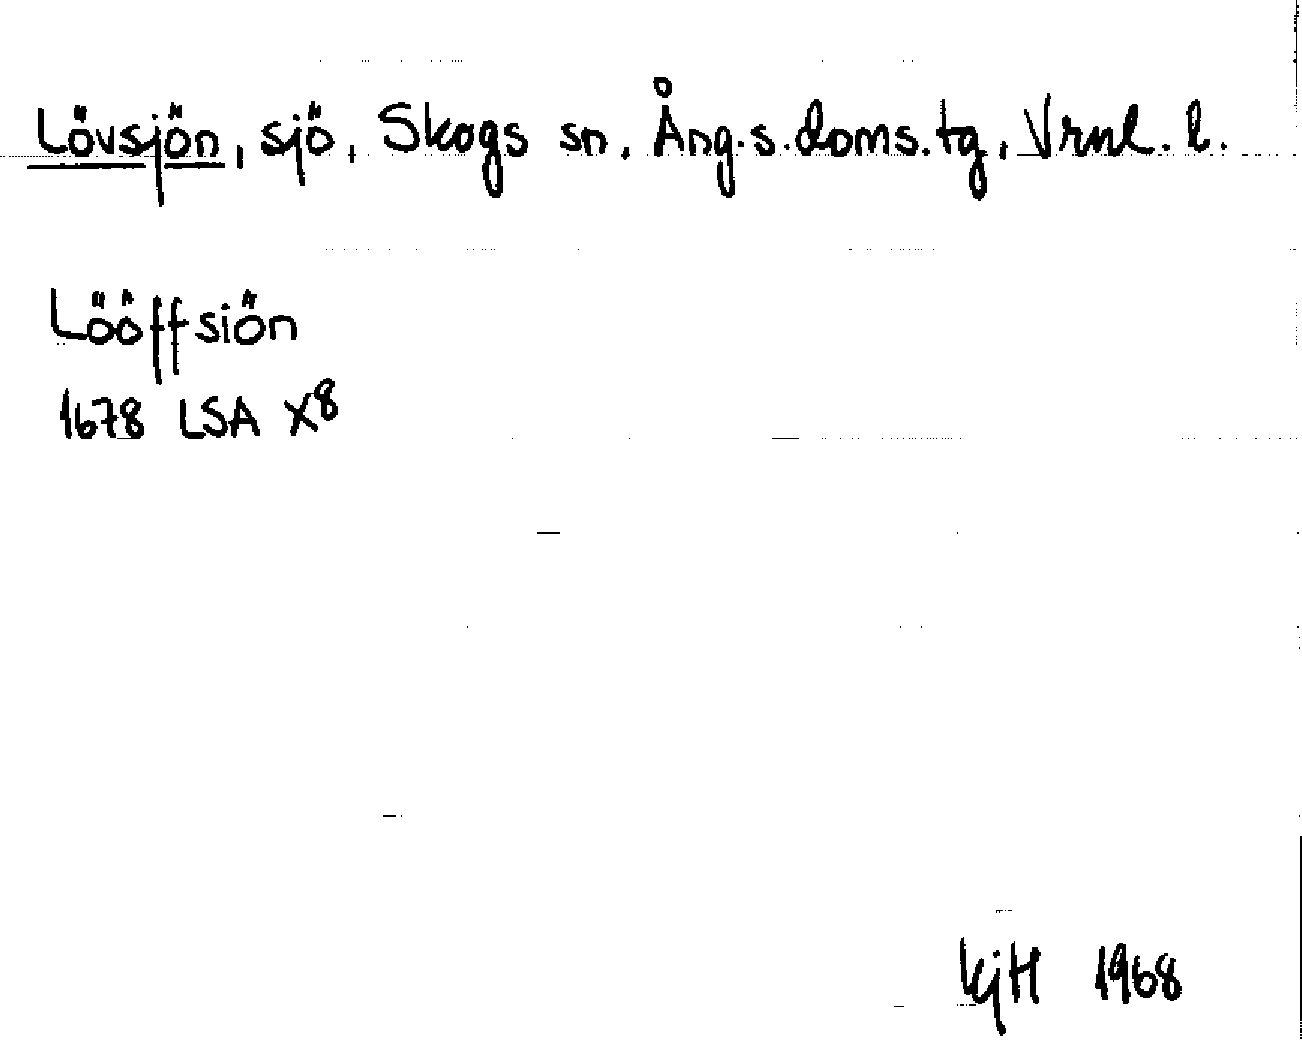 Lövsjön, sjö, Skogs sn, Ång.s.doms.tg, Vrml. l.
Lööffsiön
1678 LSA X8
KjH 1968